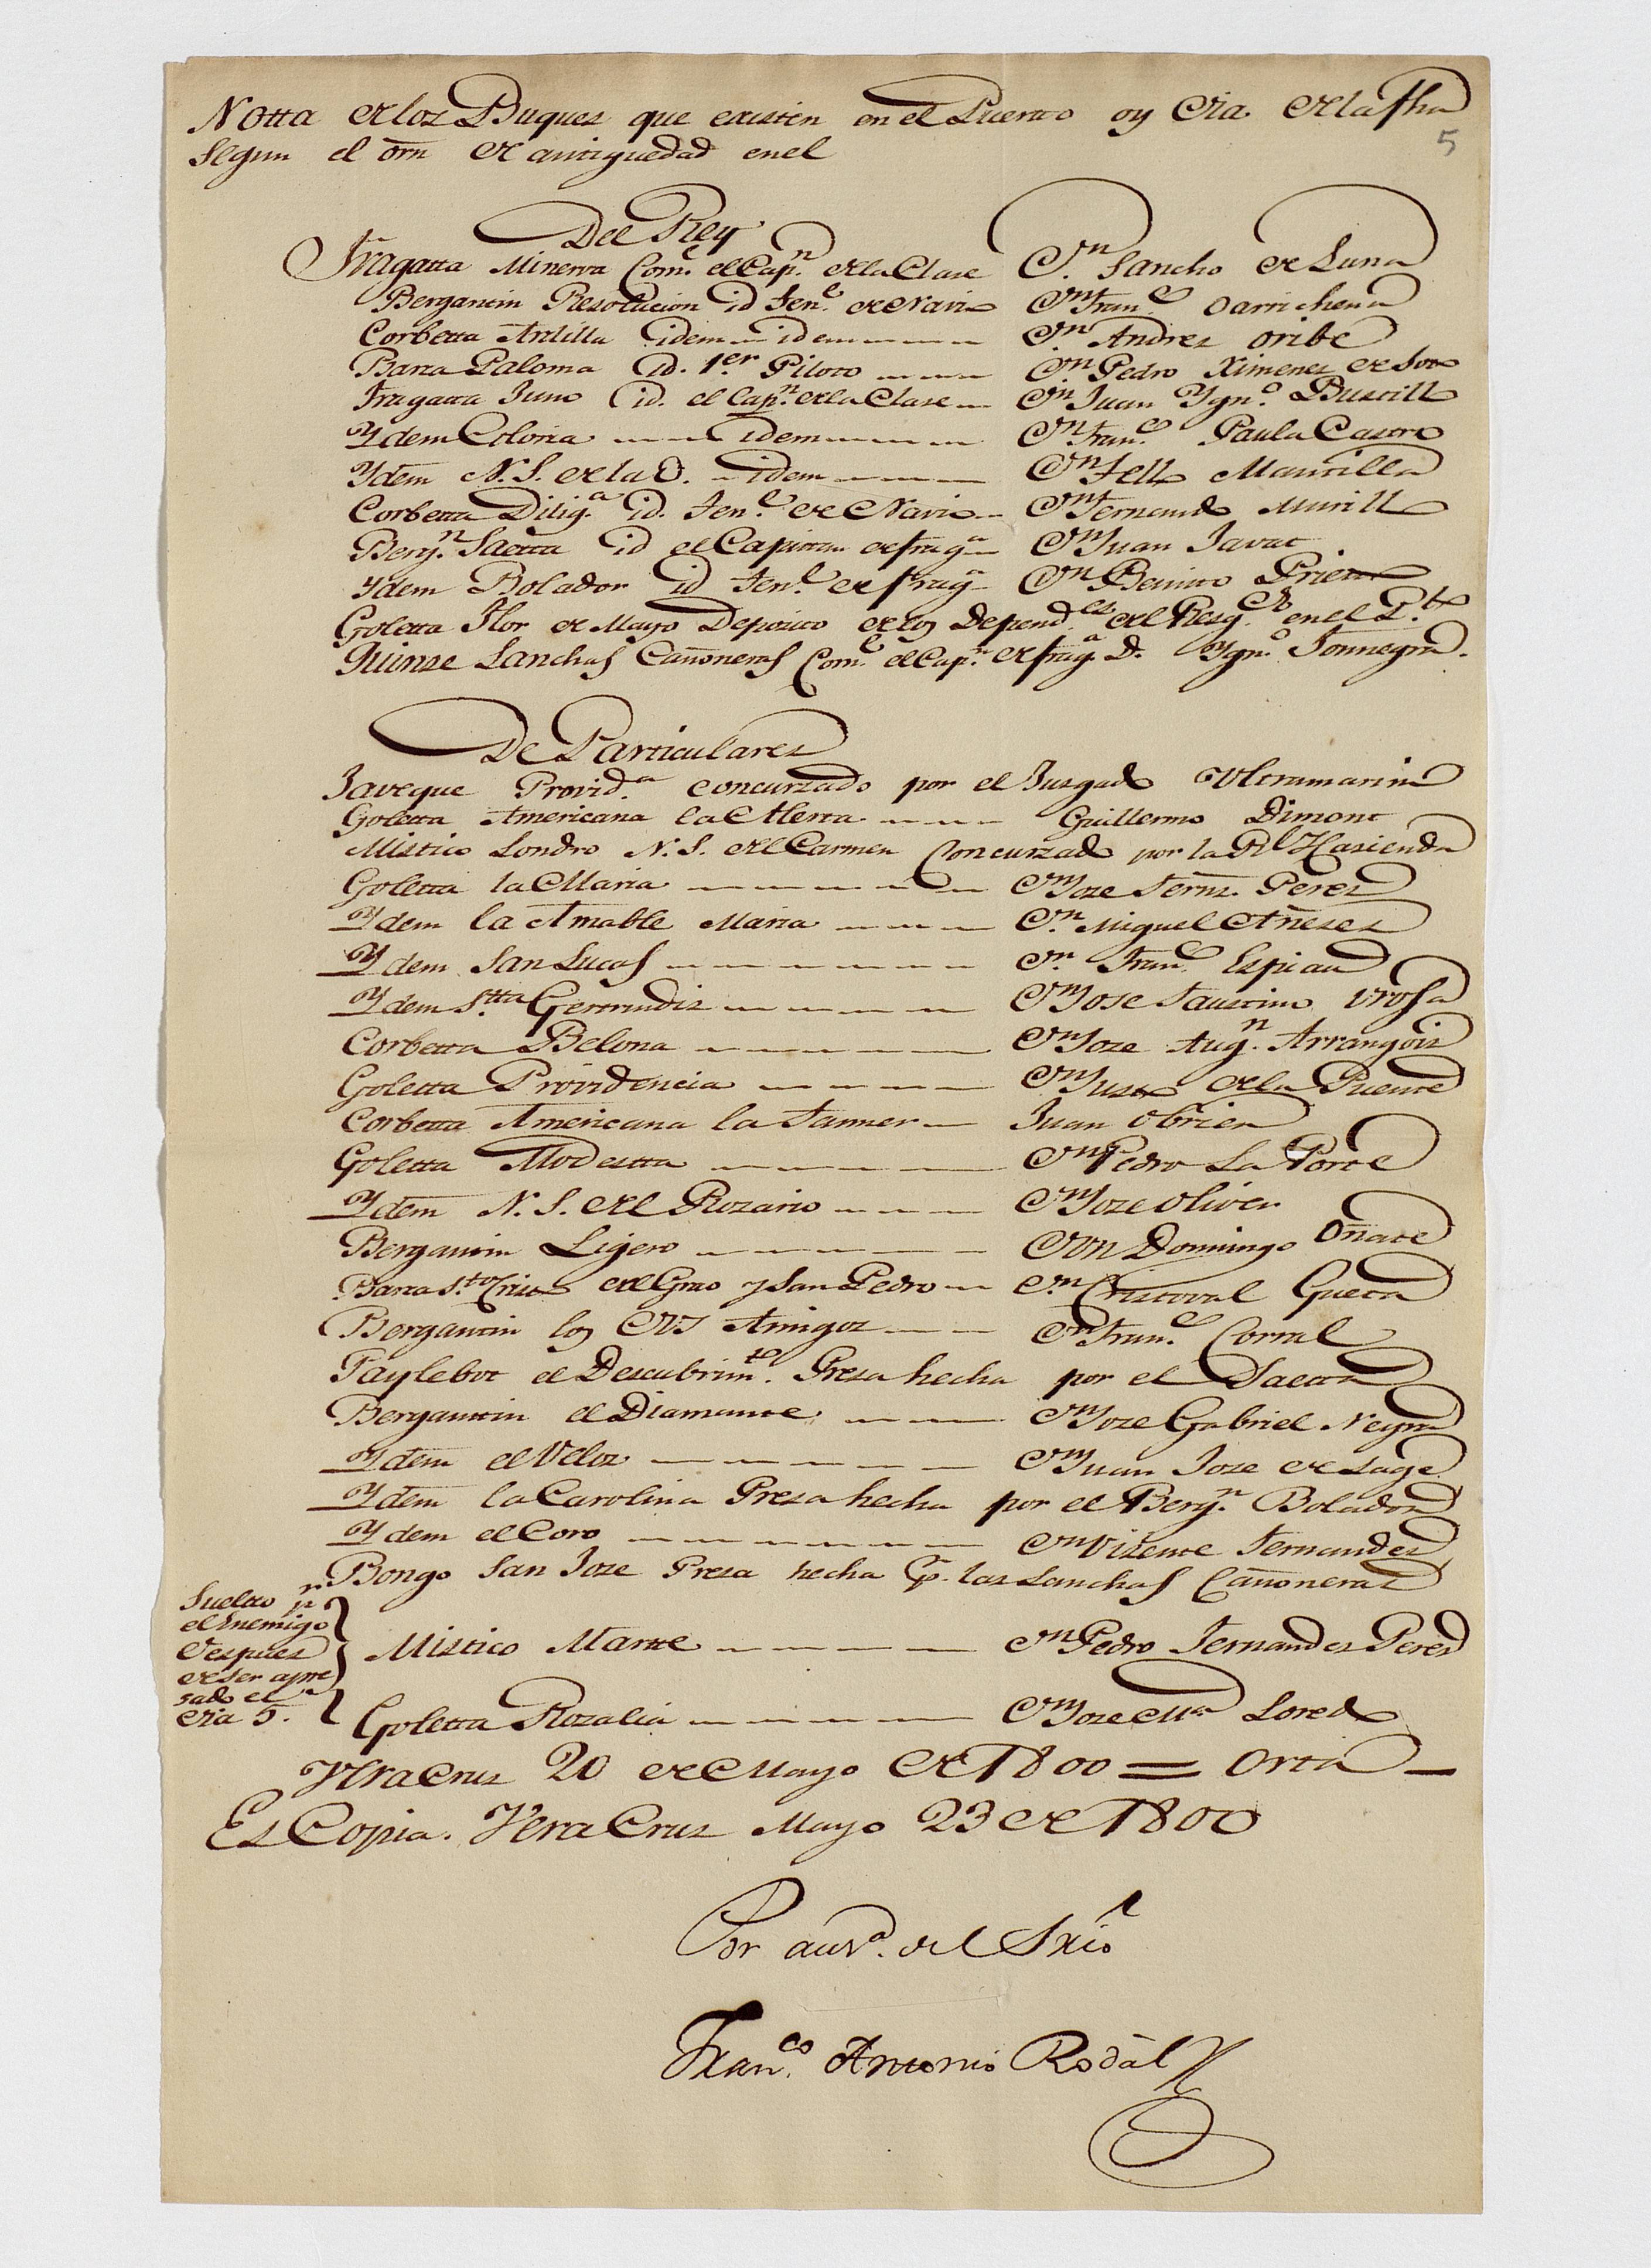 Notta de los Buques que existen en el Puerto oy dia de la fha
5
Segun el orn de antiguedad en el
Del Rey
Fragatta Minerva Com.e el Cap.n de la Clase Dn. Sancho de Luna
Bergantin Resolucion id Ten.e de Navio Dn Fran.co
Corbetta Antilla idem idem Dn Andres Oribe
Barca Paloma id. 1.er Piloto Dn Pedro Ximenez de Soto
Fragatta Juno id. el Cap.n de la Clase Dn Juan Ygn.o Bustillo
Ydem Gloria idem Dn Fran.co Paula Castro
Ydem N. S. de la O. idem Dn Mantilla
Corbetta Dilig.a id. Ten.e de Navio Dn Fernando Murillo
Berg.n Saetta id el Capittan de frag.a Dn Juan Javat
Ydem Bolador id Ten.e de frag.a Dn Benito Prieto
Goletta Flor de Mayo Deposito de los Depend.es del Resg.do en el P.to
Quinse Lanchas Cañoneras Com.e el Cap.n de frag.a D. Ygn.o Fonnegra.
De Particulares
Javeque Provid.a concurzado por el Jusgado Ultramarino
Goletta Americana la Alerta Guillermo Dimont
Mistico Londro N. S. del Carmen Concurzado por la Rl Hasienda
Goletta la Maria Dn Joze Fernz. Perez
Ydem la Amable Maria Dn. Miguel Añeses
Ydem San Lucas Dn. Fran.co Espiau
Ydem S.tta Gertrudis Dn Jose Faustino
Corbetta Belona Dn Joze Aug.n Arrangois
Goletta Providencia Dn Justo de la Puente
Corbetta Americana la Tanner Juan Obrien
Goletta Modestta Dn Pedro La Porte
Ydem N. S. del Rozario Dn Joze Oliver
Bergantin Ligero Don Domingo Oñate
Barca S.to Cristo del Grao y San Pedro Dn Cristoval
Bergantin los Dos Amigos Dn Fran.co Corral
Paylebot el Descubrim.to Presa hecha por el Saetta
Bergantin el Diamante Dn Joze Gabriel Neyra
Ydem el Veloz Dn Juan Joze de Lage
Ydem la Carolina Presa hecha por el Berg.n Bolador
Ydem el Coro Dn Vizente Fernandez
Bongo San Joze Presa hecha p.r las Lanchas Cañoneras
Suelto p.r
el Enemigo
despues
de ser apre
sado el
dia 5.
Mistico Marte Dn Pedro Fernandez Perez
Goletta Rozalia Dn Joze Ma. Loredo
Veracruz 20 de Mayo de 1800 = Orta
Es Copia. Vera Cruz Mayo 23 de 1800
Por aus.a del Srio
Fran.co Antonio Rodál